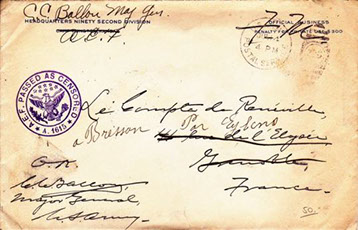 C.C. Ballou Maj Gen.
HEADQUARTERS NINETY SECOND DIVISION
A.E.F.
OFFICIAL BUSINESS
PENALTY FOR PRIVATE USE $300
A.E.F. PASSED AS CENSORED
A. 1615
Le Compte de Renéville
a Brisson Par
rue de l'Elysée
Grenoble
France
O.K.
C.C. Ballou
Major General
U.S. Army
50.